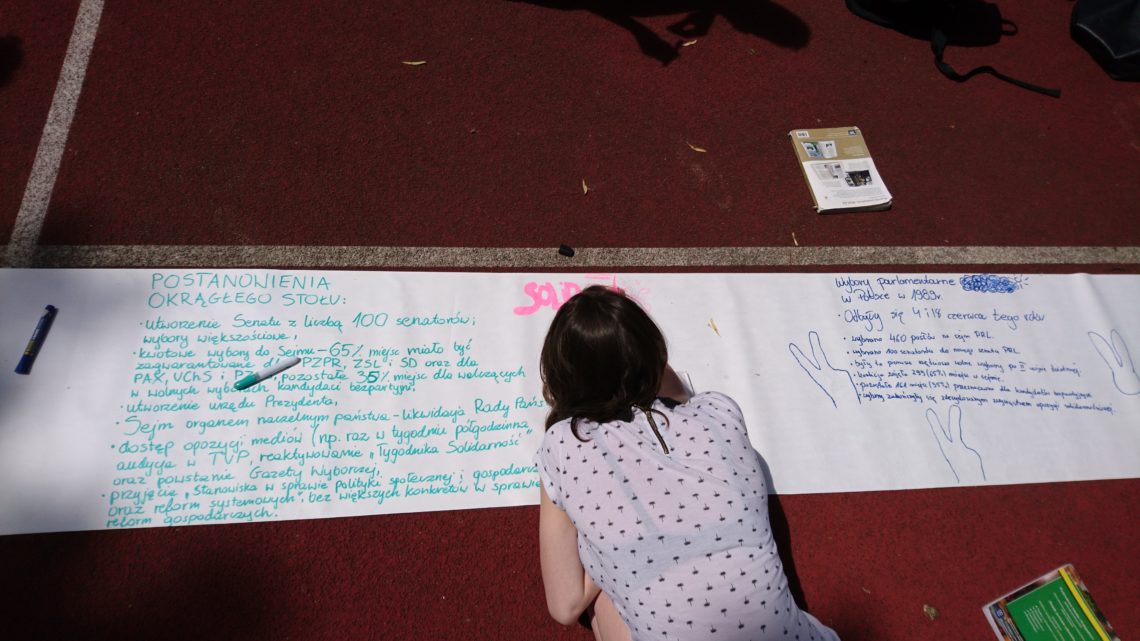 POSTANOWIENIA
OKRĄGŁEGO STOŁU:
· utworzenie Senatu z liczbą 100 senatorów;
wybory większościowe,
· kwotowe wybory do Sejmu – 65% miejsc miało być
zagwarantowane PZPR, ZSL i SD oraz dla
PAX, UChS i pozostałe 35% miejsc dla walczących
w wolnych wyborach kandydaci bezpartyjni,
· utworzenie urzędu Prezydenta,
· Sejm organem naczelnym państwa – likwidacja Rady Państ
· dostęp opozycji mediów (np. raz w tygodniu półgodzinna
audycja w TVP, reaktywowanie „Tygodnika Solidarność”
oraz powstanie Gazety Wyborczej,
· przyjęcie „Stanowiska w sprawie polityki społecznej i gospodarcz
oraz reform systemowych”, bez większych konkretów w sprawie
reform gospodarczych.
SOLID
Wybory parlamentarne
w Polsce w 1989r.
· Odbyły się 4 i 18 czerwca tego roku
· wybrano 460 posłów na sejm PRL
· wybrano 100 senatorów do nowego senatu PRL
· były to pierwsze częściowo wolne wybory po II wojnie światowej
· koalicja zajęła 299 (65%) miejsc w sejmie
· pozostałe 161 miejsc (35%) przeznaczono dla kandydatów bezpartyjnych
· wybory zakończyły się zdecydowanym zwycięstwem opozycji solidarnościowej.